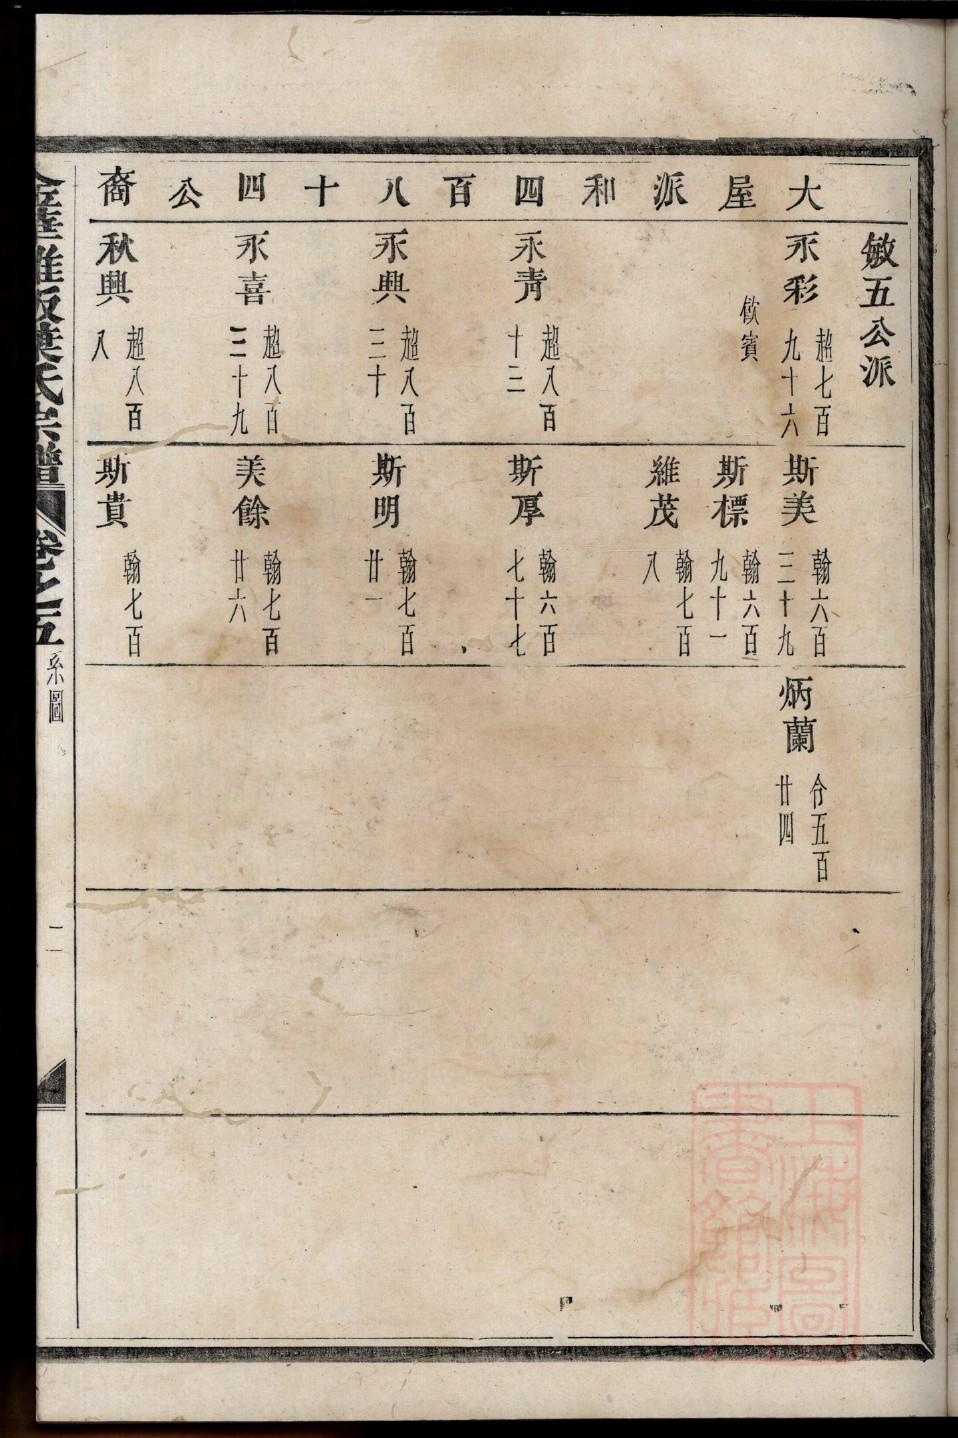 大屋派和四百八十四公裔
敏五公派
永彩 超七百九十六
飲賓
永青 超八百十三
永興 超八百三十
永喜 超八百三十九
秋興 超八百八
斯美 翰六百三十九
斯標 翰六百九十一
維茂 翰七百八
斯厚 翰六百七十七
斯明 翰七百廿一
美餘 翰七百廿六
斯貴 翰七百
炳蘭 令五百廿四
葉氏宗譜 卷之五 系圖 二
上海圖書館藏